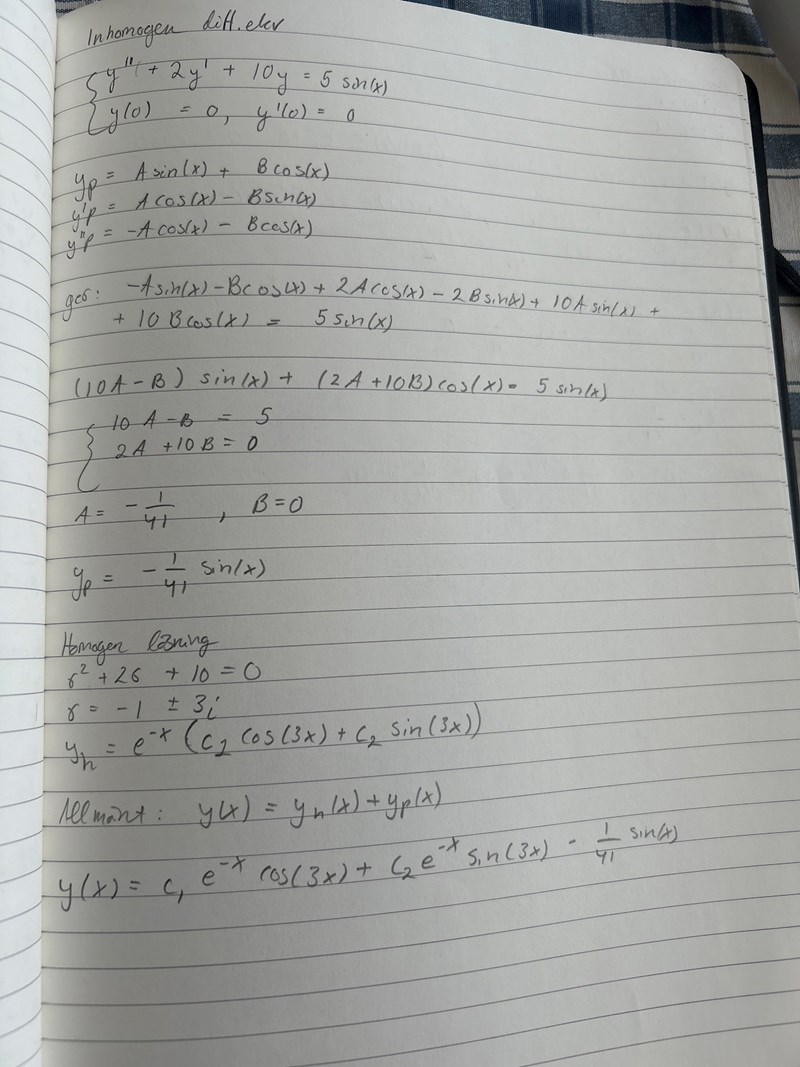 Inhomogen diff.ekv
y'' + 2y' + 10y = 5 sin(x)
y(0) = 0, y'(0) = 0
yp = A sin(x) + B cos(x)
y'p = A cos(x) - B sin(x)
y''p = -A cos(x) - B cos(x)
ger: -A sin(x) - B cos(x) + 2A cos(x) - 2B sin(x) + 10A sin(x) +
+ 10 B cos(x) = 5 sin(x)
(10A - B) sin(x) + (2A + 10B) cos(x) = 5 sin(x)
10 A - B = 5
2A + 10B = 0
A = - 1/41 , B = 0
yp = - 1/41 sin(x)
Homogen lösning
r² + 2r + 10 = 0
r = -1 ± 3i
yh = e^-x (C2 cos(3x) + C2 sin(3x))
Allmänt: y(x) = yh(x) + yp(x)
y(x) = C1 e^-x cos(3x) + C2 e^-x sin(3x) - 1/41 sin(x)